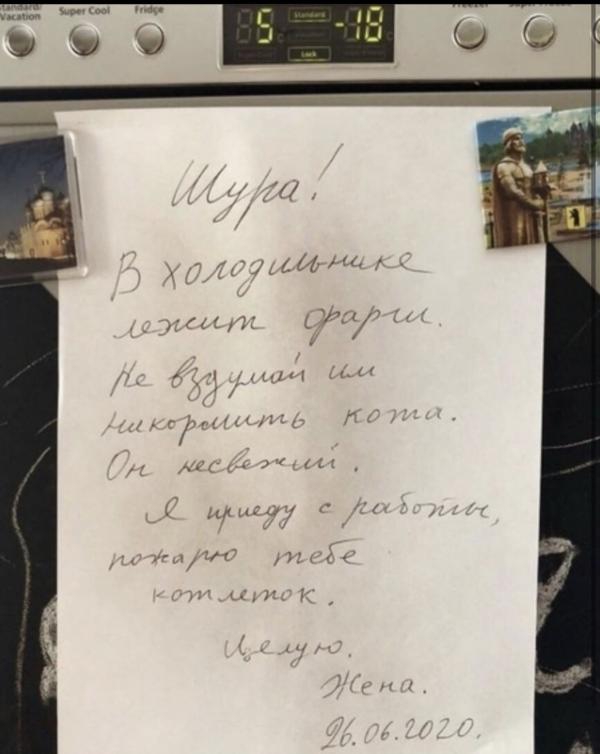 Standard/ Vacation
Super Cool
Fridge
5
Standard
Lock
-18
Freezer
Шура!
В холодильнике
лежит фарш.
Не вздумай им
накормить кота.
Он несвежий.
Я приеду с работы,
пожарю тебе
котлеток.
Целую.
Жена.
26.06.2020.